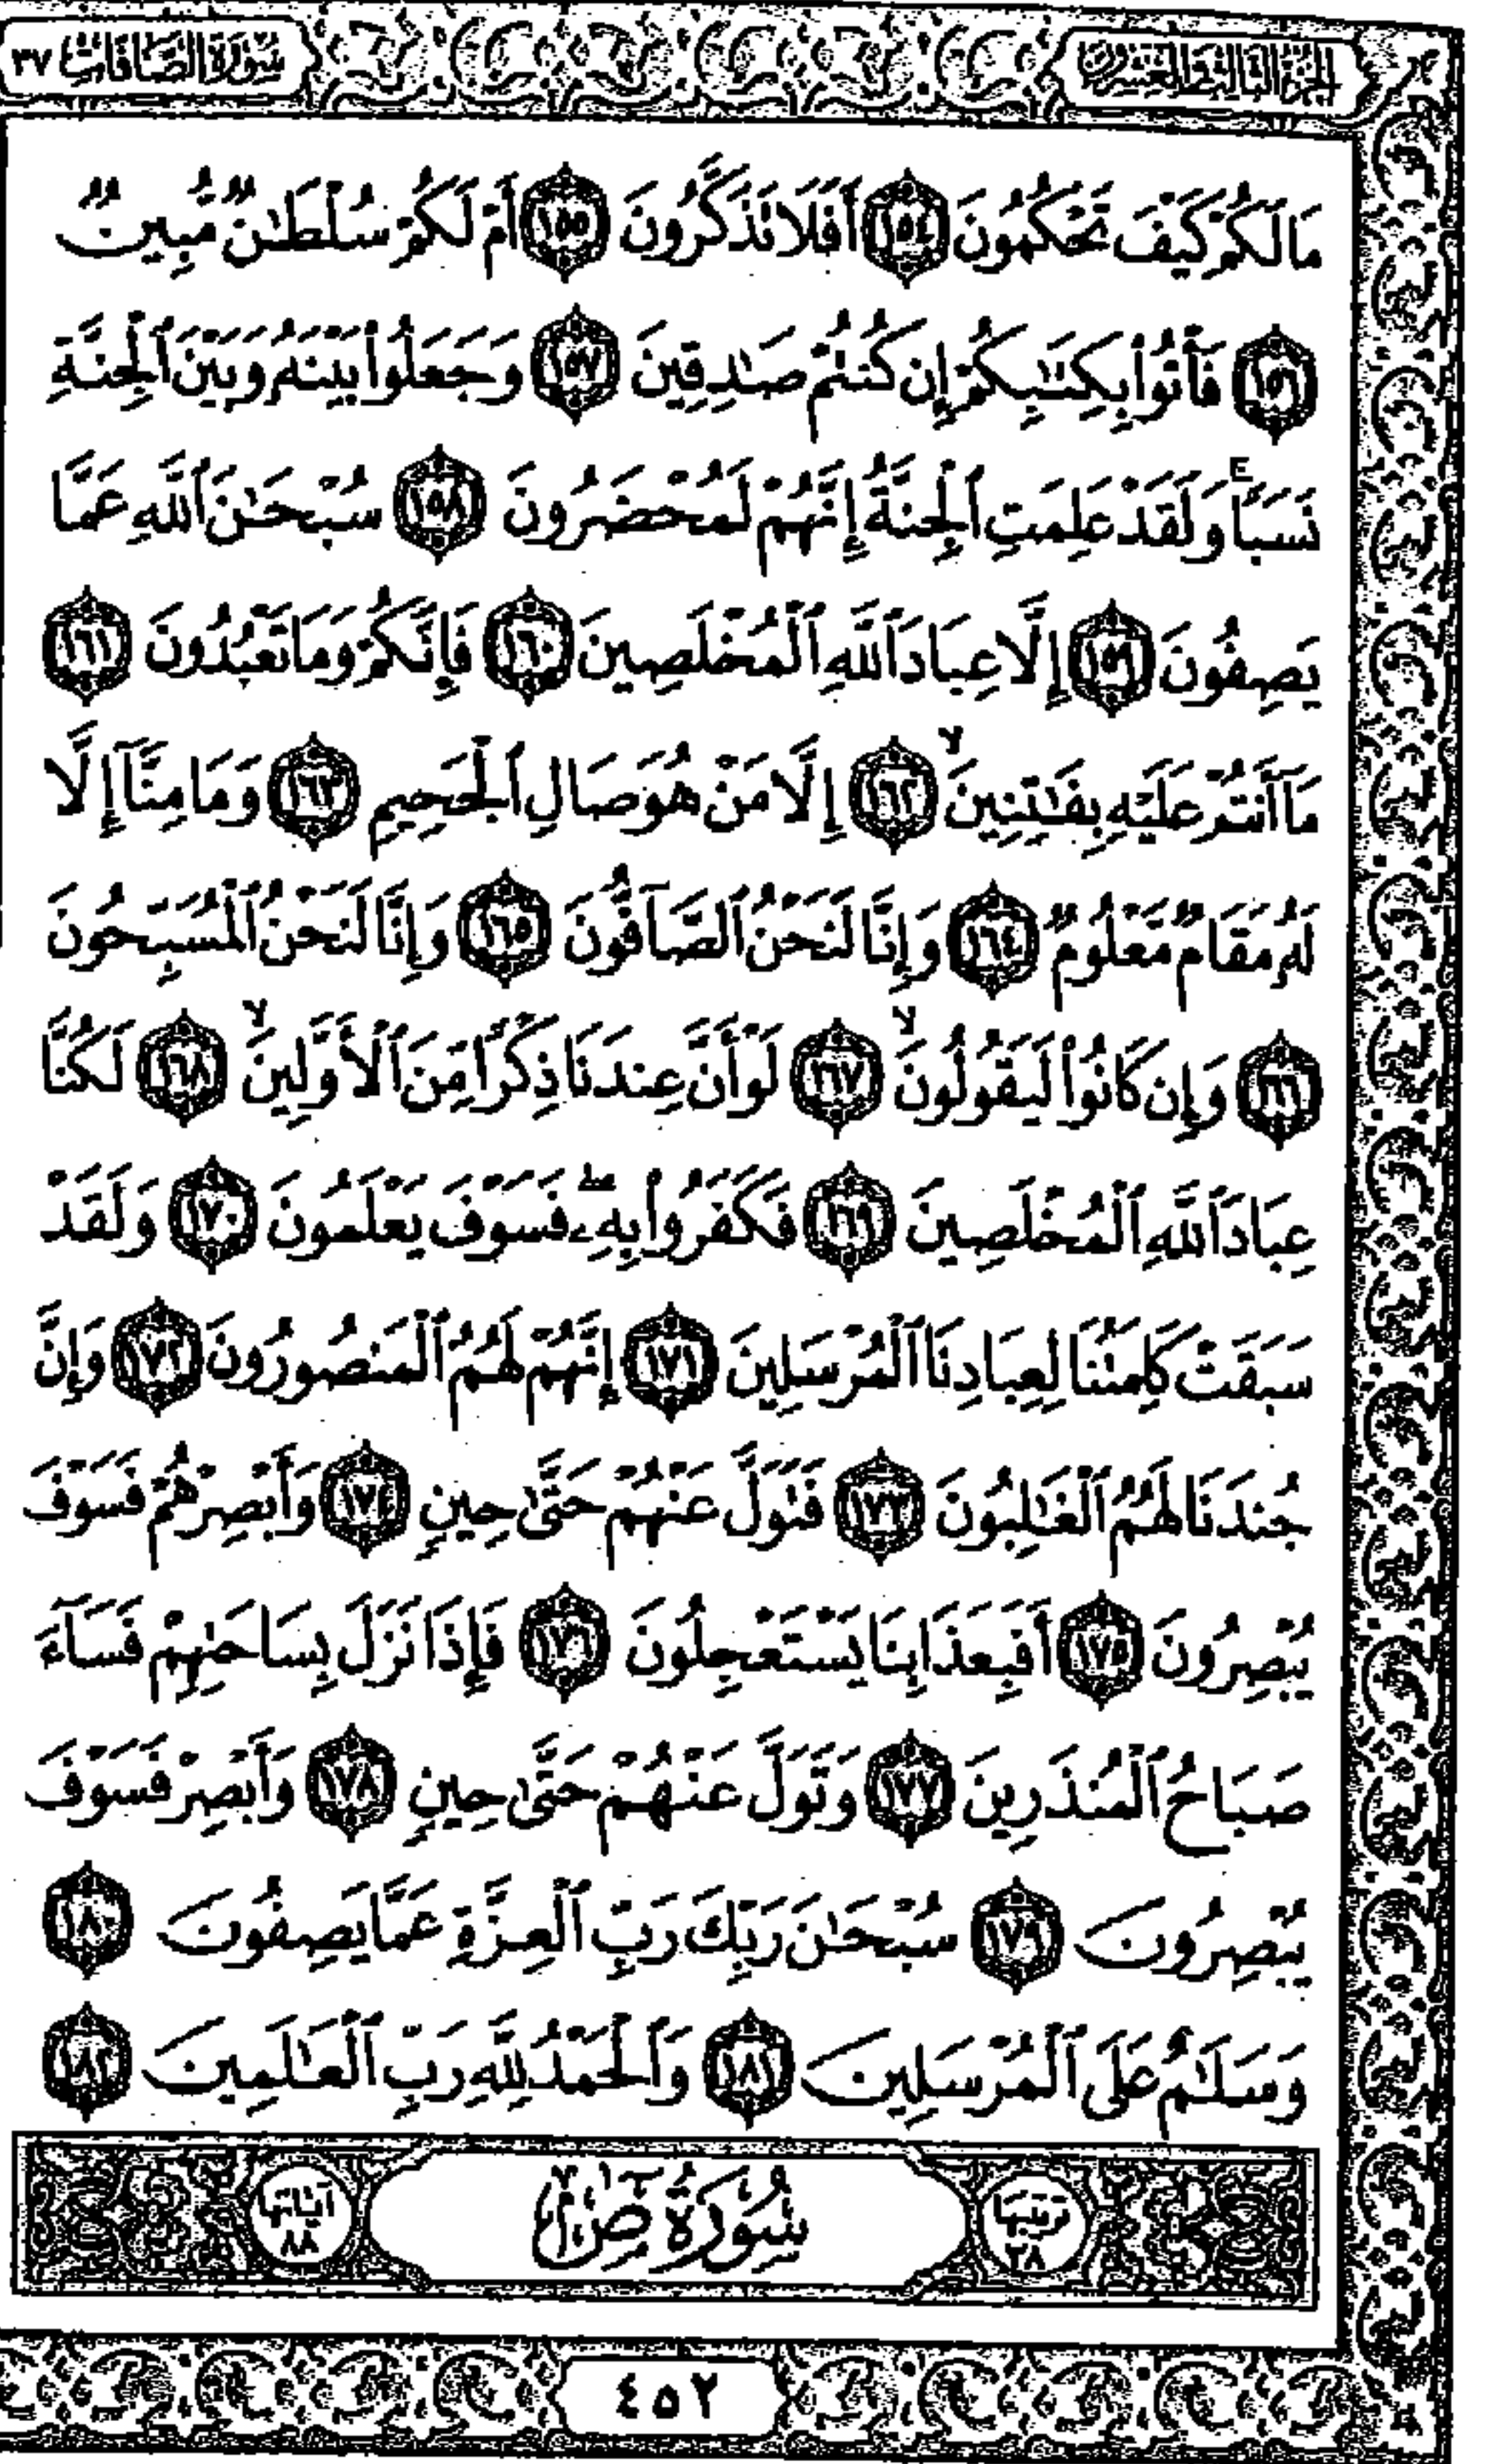 الجزء الثالث والعشرون
سورة الصافات ٣٧
مَا لَكُمْ كَيْفَ تَحْكُمُونَ ١٥٤ أَفَلَا تَذَكَّرُونَ ١٥٥ أَمْ لَكُمْ سُلْطَٰنٌ مُّبِينٌ
١٥٦ فَأْتُوا۟ بِكِتَٰبِكُمْ إِن كُنتُمْ صَٰدِقِينَ ١٥٧ وَجَعَلُوا۟ بَيْنَهُۥ وَبَيْنَ ٱلْجِنَّةِ
نَسَبًا ۚ وَلَقَدْ عَلِمَتِ ٱلْجِنَّةُ إِنَّهُمْ لَمُحْضَرُونَ ١٥٨ سُبْحَٰنَ ٱللَّهِ عَمَّا
يَصِفُونَ ١٥٩ إِلَّا عِبَادَ ٱللَّهِ ٱلْمُخْلَصِينَ ١٦٠ فَإِنَّكُمْ وَمَا تَعْبُدُونَ ١٦١
مَآ أَنتُمْ عَلَيْهِ بِفَٰتِنِينَ ۙ ١٦٢ إِلَّا مَنْ هُوَ صَالِ ٱلْجَحِيمِ ١٦٣ وَمَا مِنَّآ إِلَّا
لَهُۥ مَقَامٌ مَّعْلُومٌ ١٦٤ وَإِنَّا لَنَحْنُ ٱلصَّآفُّونَ ١٦٥ وَإِنَّا لَنَحْنُ ٱلْمُسَبِّحُونَ
١٦٦ وَإِن كَانُوا۟ لَيَقُولُونَ ۙ ١٦٧ لَوْ أَنَّ عِندَنَا ذِكْرًا مِّنَ ٱلْأَوَّلِينَ ۙ ١٦٨ لَكُنَّا
عِبَادَ ٱللَّهِ ٱلْمُخْلَصِينَ ١٦٩ فَكَفَرُوا۟ بِهِۦ ۖ فَسَوْفَ يَعْلَمُونَ ١٧٠ وَلَقَدْ
سَبَقَتْ كَلِمَتُنَا لِعِبَادِنَا ٱلْمُرْسَلِينَ ١٧١ إِنَّهُمْ لَهُمُ ٱلْمَنصُورُونَ ١٧٢ وَإِنَّ
جُندَنَا لَهُمُ ٱلْغَٰلِبُونَ ١٧٣ فَتَوَلَّ عَنْهُمْ حَتَّىٰ حِينٍ ١٧٤ وَأَبْصِرْهُمْ فَسَوْفَ
يُبْصِرُونَ ١٧٥ أَفَبِعَذَابِنَا يَسْتَعْجِلُونَ ١٧٦ فَإِذَا نَزَلَ بِسَاحَتِهِمْ فَسَآءَ
صَبَاحُ ٱلْمُنذَرِينَ ١٧٧ وَتَوَلَّ عَنْهُمْ حَتَّىٰ حِينٍ ١٧٨ وَأَبْصِرْ فَسَوْفَ
يُبْصِرُونَ ١٧٩ سُبْحَٰنَ رَبِّكَ رَبِّ ٱلْعِزَّةِ عَمَّا يَصِفُونَ ١٨٠
وَسَلَٰمٌ عَلَى ٱلْمُرْسَلِينَ ١٨١ وَٱلْحَمْدُ لِلَّهِ رَبِّ ٱلْعَٰلَمِينَ ١٨٢
ترتيبها ٣٨
سُورَةُ صٓ
آياتها ٨٨
٤٥٢